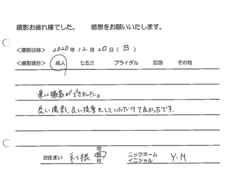 撮影お疲れ様でした。　感想をお願いいたします。
<撮影日時>　2020年 12月 20日（日）
<撮影項目>　成人　七五三　ブライダル　記念　その他
良い撮影ができました。
良い撮影、良い接客をしていただけて良かったです。
お住まい　利根　市 町 村　ニックネーム イニシャル　Y.M